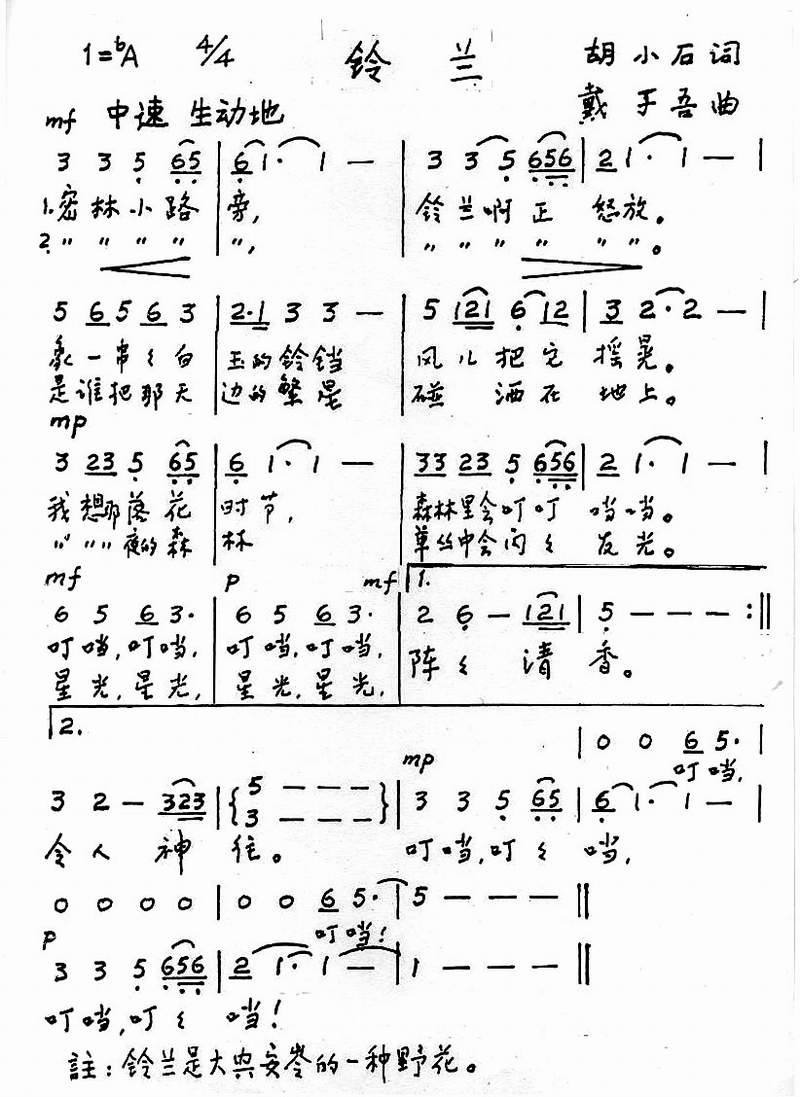 1=ᵇA 4/4 铃 兰 胡小石词
mf 中速 生动地 戴于吾曲
3 3 5 65 | 6 1· 1 — | 3 3 5 656 | 2 1· 1 — |
1.密林小路 旁, 铃兰啊正 怒放。
2.〃 〃 〃 〃 〃, 〃 〃 〃 〃 〃 〃。
5 6 5 6 3 | 2·1 3 3 — | 5 121 6 12 | 3 2· 2 — |
象一串〻白 玉的铃铛 风儿把它 摇晃。
是谁把那天 边的繁星 碰 洒在 地上。
mp
3 23 5 65 | 6 1· 1 — | 33 23 5 656 | 2 1· 1 — |
我想那落花 时节, 森林里会叮叮 当当。
〃 〃 〃 夜的森 林 草丛中会闪〻 发光。
mf p mf 1.
6 5 6 3· | 6 5 6 3· | 2 6 — 121 | 5 — — — :‖
叮噹,叮噹, 叮噹,叮噹, 阵〻 清 香。
星光,星光, 星光,星光,
2.
| 0 0 6 5· |
mp 叮噹,
3 2 — 323 | { 5 — — — 3 — — — } | 3 3 5 65 | 6 1· 1 — |
令人 神 往。 叮噹,叮〻 噹,
0 0 0 0 | 0 0 6 5· | 5 — — — ‖
p 叮噹!
3 3 5 656 | 2 1· 1 — | 1 — — — ‖
叮噹,叮〻 噹!
註:铃兰是大兴安岺的一种野花。